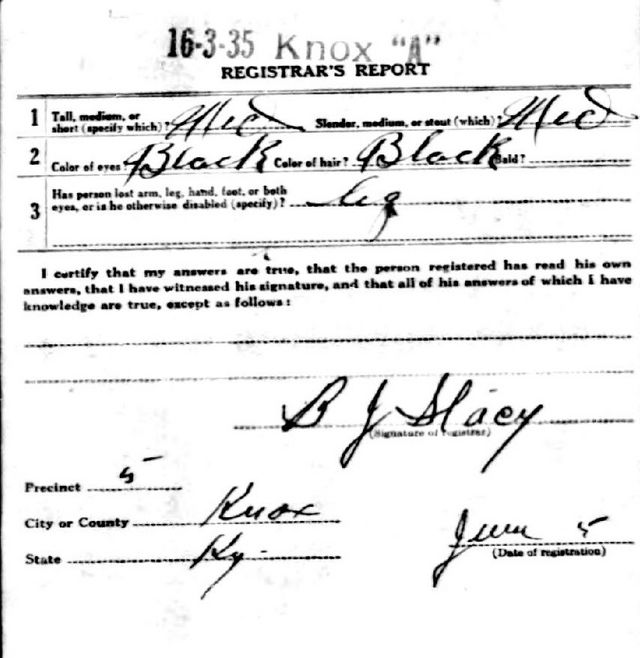 16-3-35 Knox "A"
REGISTRAR'S REPORT
1 Tall, medium, or short (specify which)? Med Slender, medium, or stout (which)? Med
2 Color of eyes? Black Color of hair? Black Bald?
3 Has person lost arm, leg, hand, foot, or both eyes, or is he otherwise disabled (specify)? leg
I certify that my answers are true, that the person registered has read his own
answers, that I have witnessed his signature, and that all of his answers of which I have
knowledge are true, except as follows:
B J Stacy
(Signature of registrar)
Precinct 5
City or County Knox
State Ky
June 5
(Date of registration)